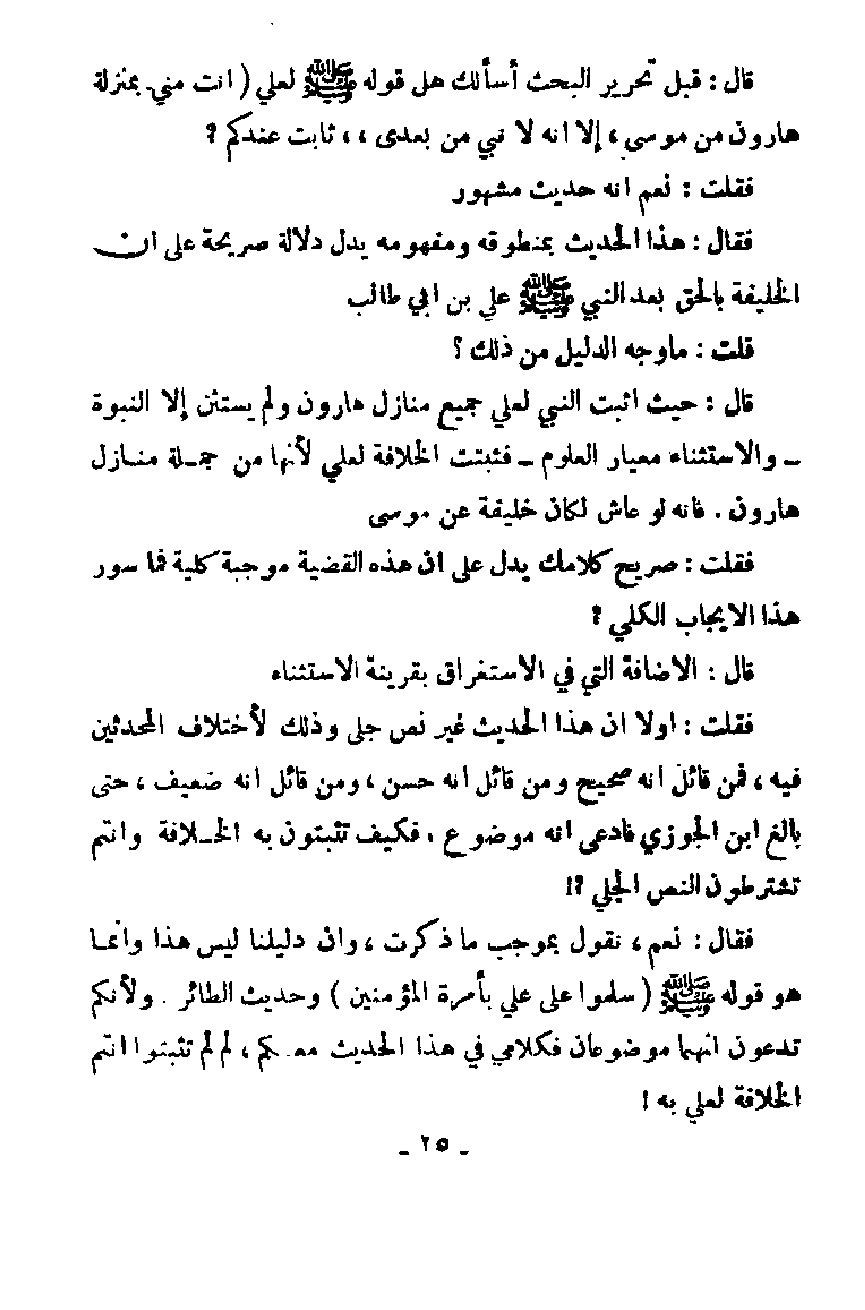 قال : قبل تحرير البحث أسألك هل قوله ﷺ لعلي ( انت مني بمنزلة
هارون من موسى ، إلا انه لا نبي من بعدى ، ، ثابت عندكم ؟
فقلت : نعم انه حديث مشهور
فقال : هذا الحديث بمنطوقه ومفهومه يدل دلالة صريحة على ان
الخليفة بالحق بعد النبي ﷺ علي بن ابي طالب
قلت : ماوجه الدليل من ذلك ؟
قال : حيث اثبت النبي لعلي جميع منازل هارون ولم يستثن إلا النبوة
ـ والاستثناء معيار العلوم ـ فثبتت الخلافة لعلي لأنها من جمـلة منـازل
هارون . فانه لو عاش لكان خليفة عن موسى
فقلت : صريح كلامك يدل على ان هذه القضية موجبة كلية فما سور
هذا الايجاب الكلي ؟
قال : الاضافة التي في الاستغراق بقرينة الاستثناء
فقلت : اولا ان هذا الحديث غير نص جلي وذلك لأختلاف المحدثين
فيه ، فمن قائل انه صحيح ومن قائل انه حسن ، ومن قائل انه ضعيف ، حتى
بالغ ابن الجوزي فادعى انه موضوع ، فكيف تثبتون به الخـلافة وانتم
تشترطون النص الجلي ؟!
فقال : نعم ، نقول بموجب ما ذكرت ، وان دليلنا ليس هذا وانمـا
هو قوله ﷺ ( سلموا على علي بأمرة المؤمنين ) وحديث الطائر . ولأنكم
تدعون انهما موضوعان فكلامي في هذا الحديث معـكم ، لم لم تثبتوا انتم
الخلافة لعلي به !
ـ ٢٥ ـ